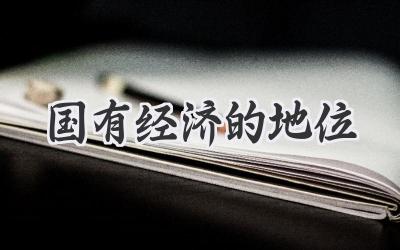 国有经济的地位